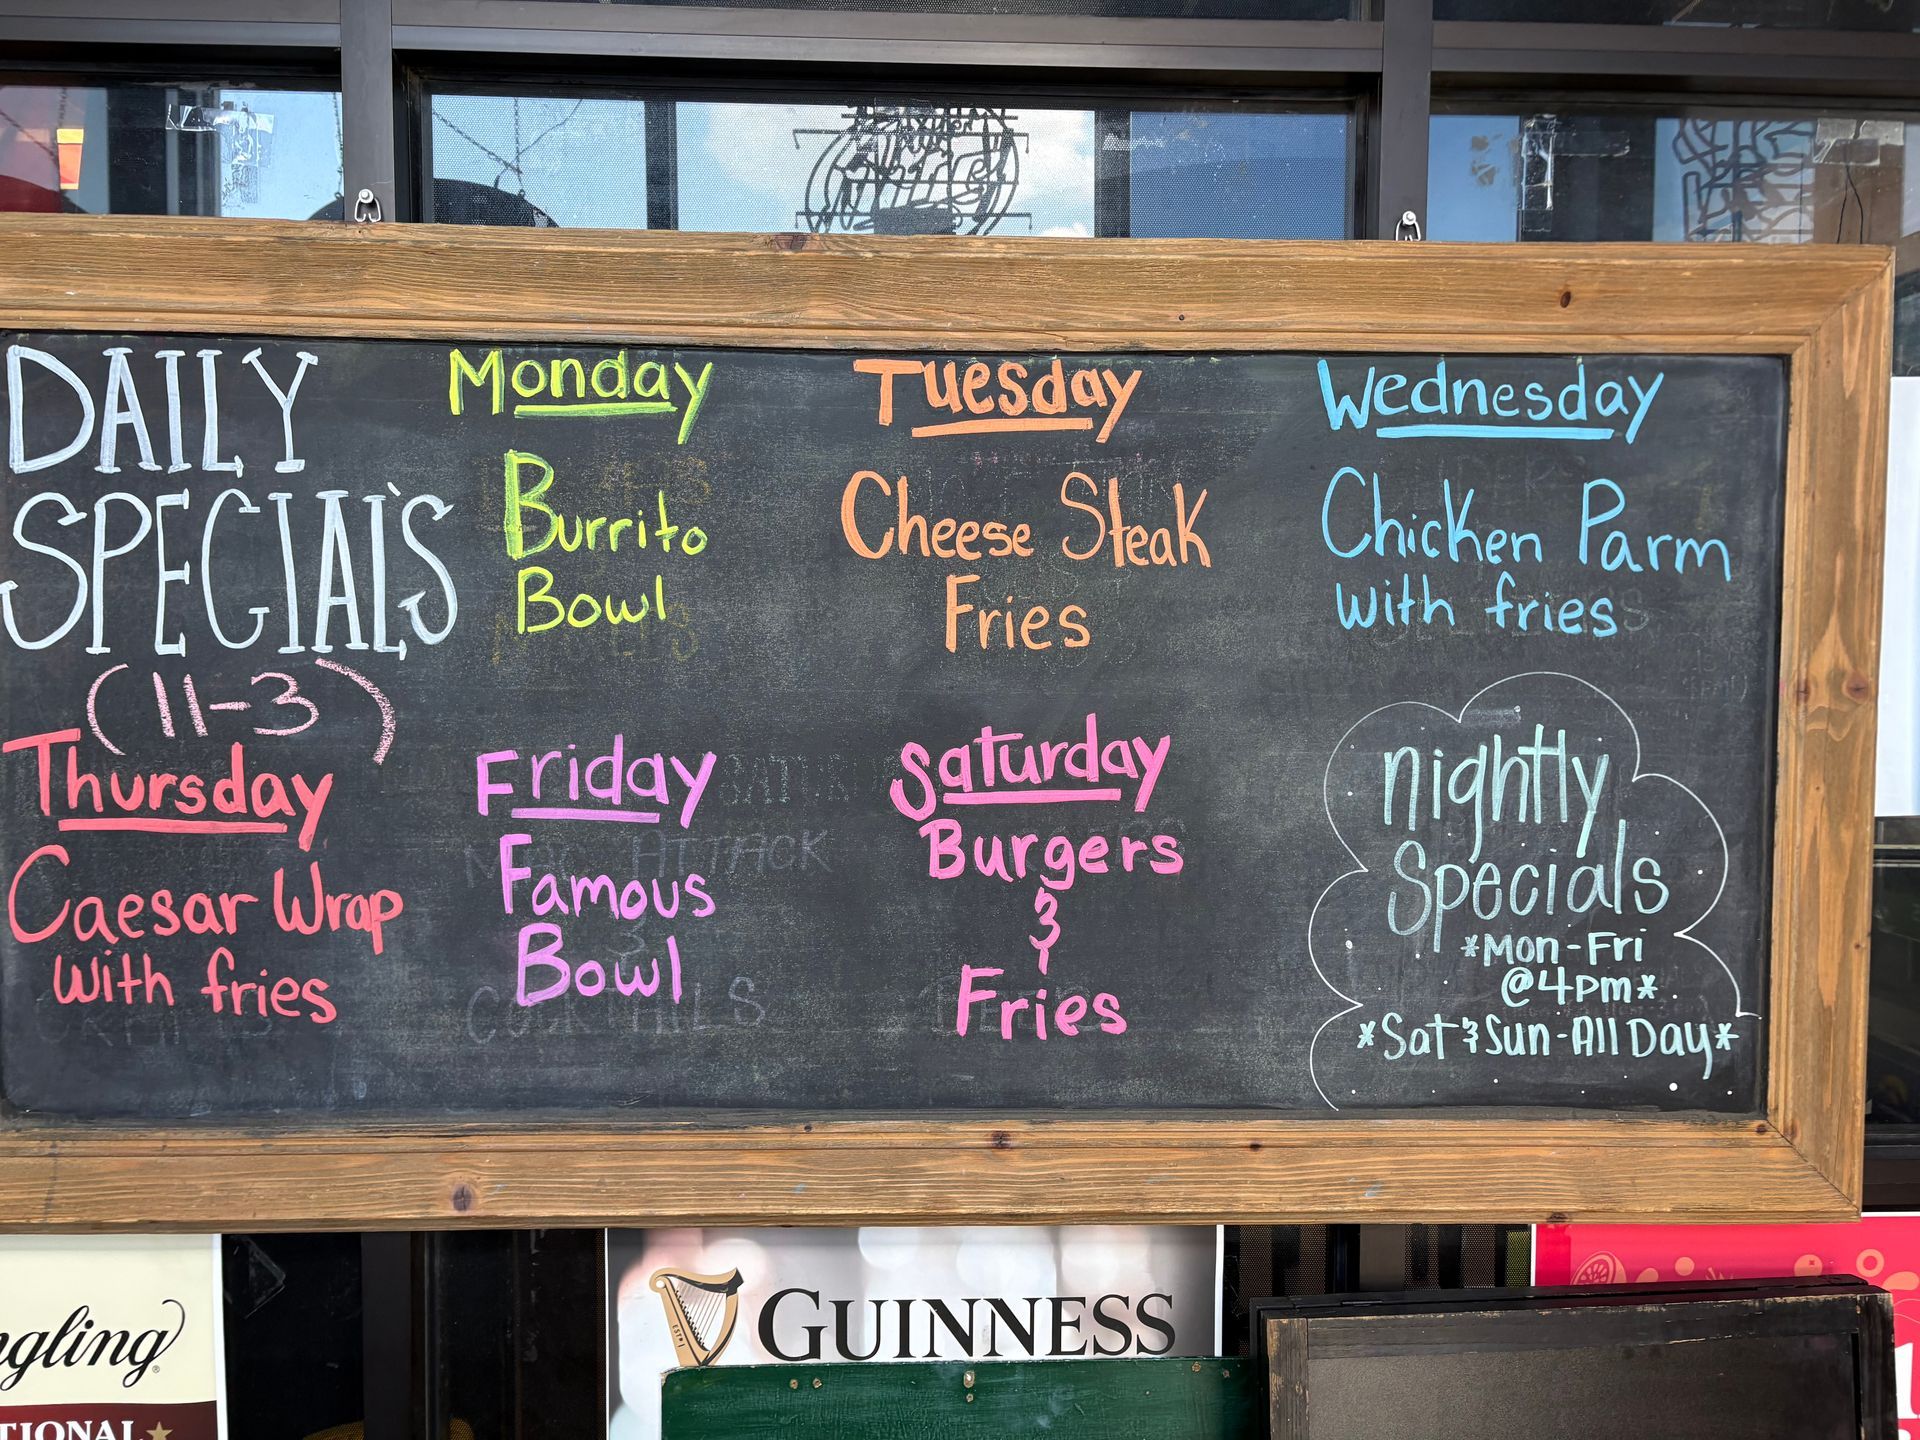 DAILY
SPECIAL'S
(11-3)
Monday
Burrito
Bowl
Tuesday
Cheese Steak
Fries
Wednesday
Chicken Parm
with fries
Thursday
Caesar Wrap
with fries
Friday
Famous
Bowl
Saturday
Burgers
&
Fries
nightly
Specials
*Mon-Fri
@4pm*
*Sat & Sun-All Day*
ATTACK
COCKTAILS
ngling
TIONAL
EST.
GUINNESS